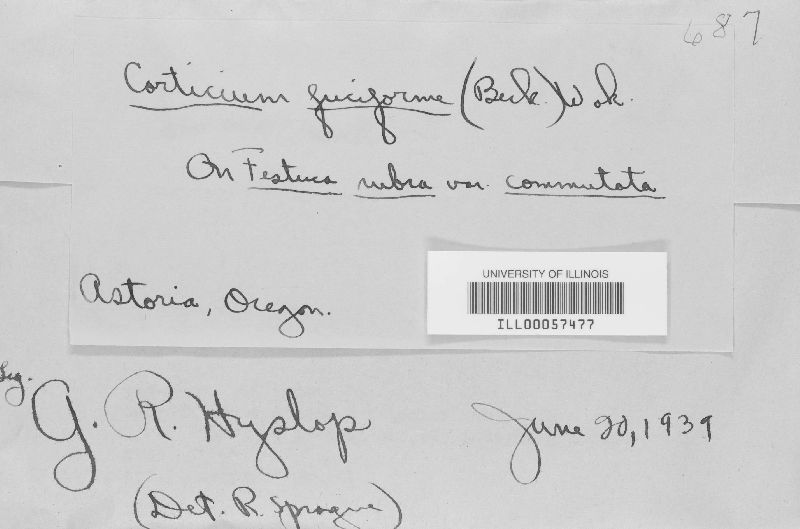 687
Corticium fuciforme (Berk.) Wak.
On Festuca rubra var. commutata
Astoria, Oregon.
UNIVERSITY OF ILLINOIS
ILL00057477
Leg.
G. R. Hyslop June 20, 1939
(Det. R. Sprague)